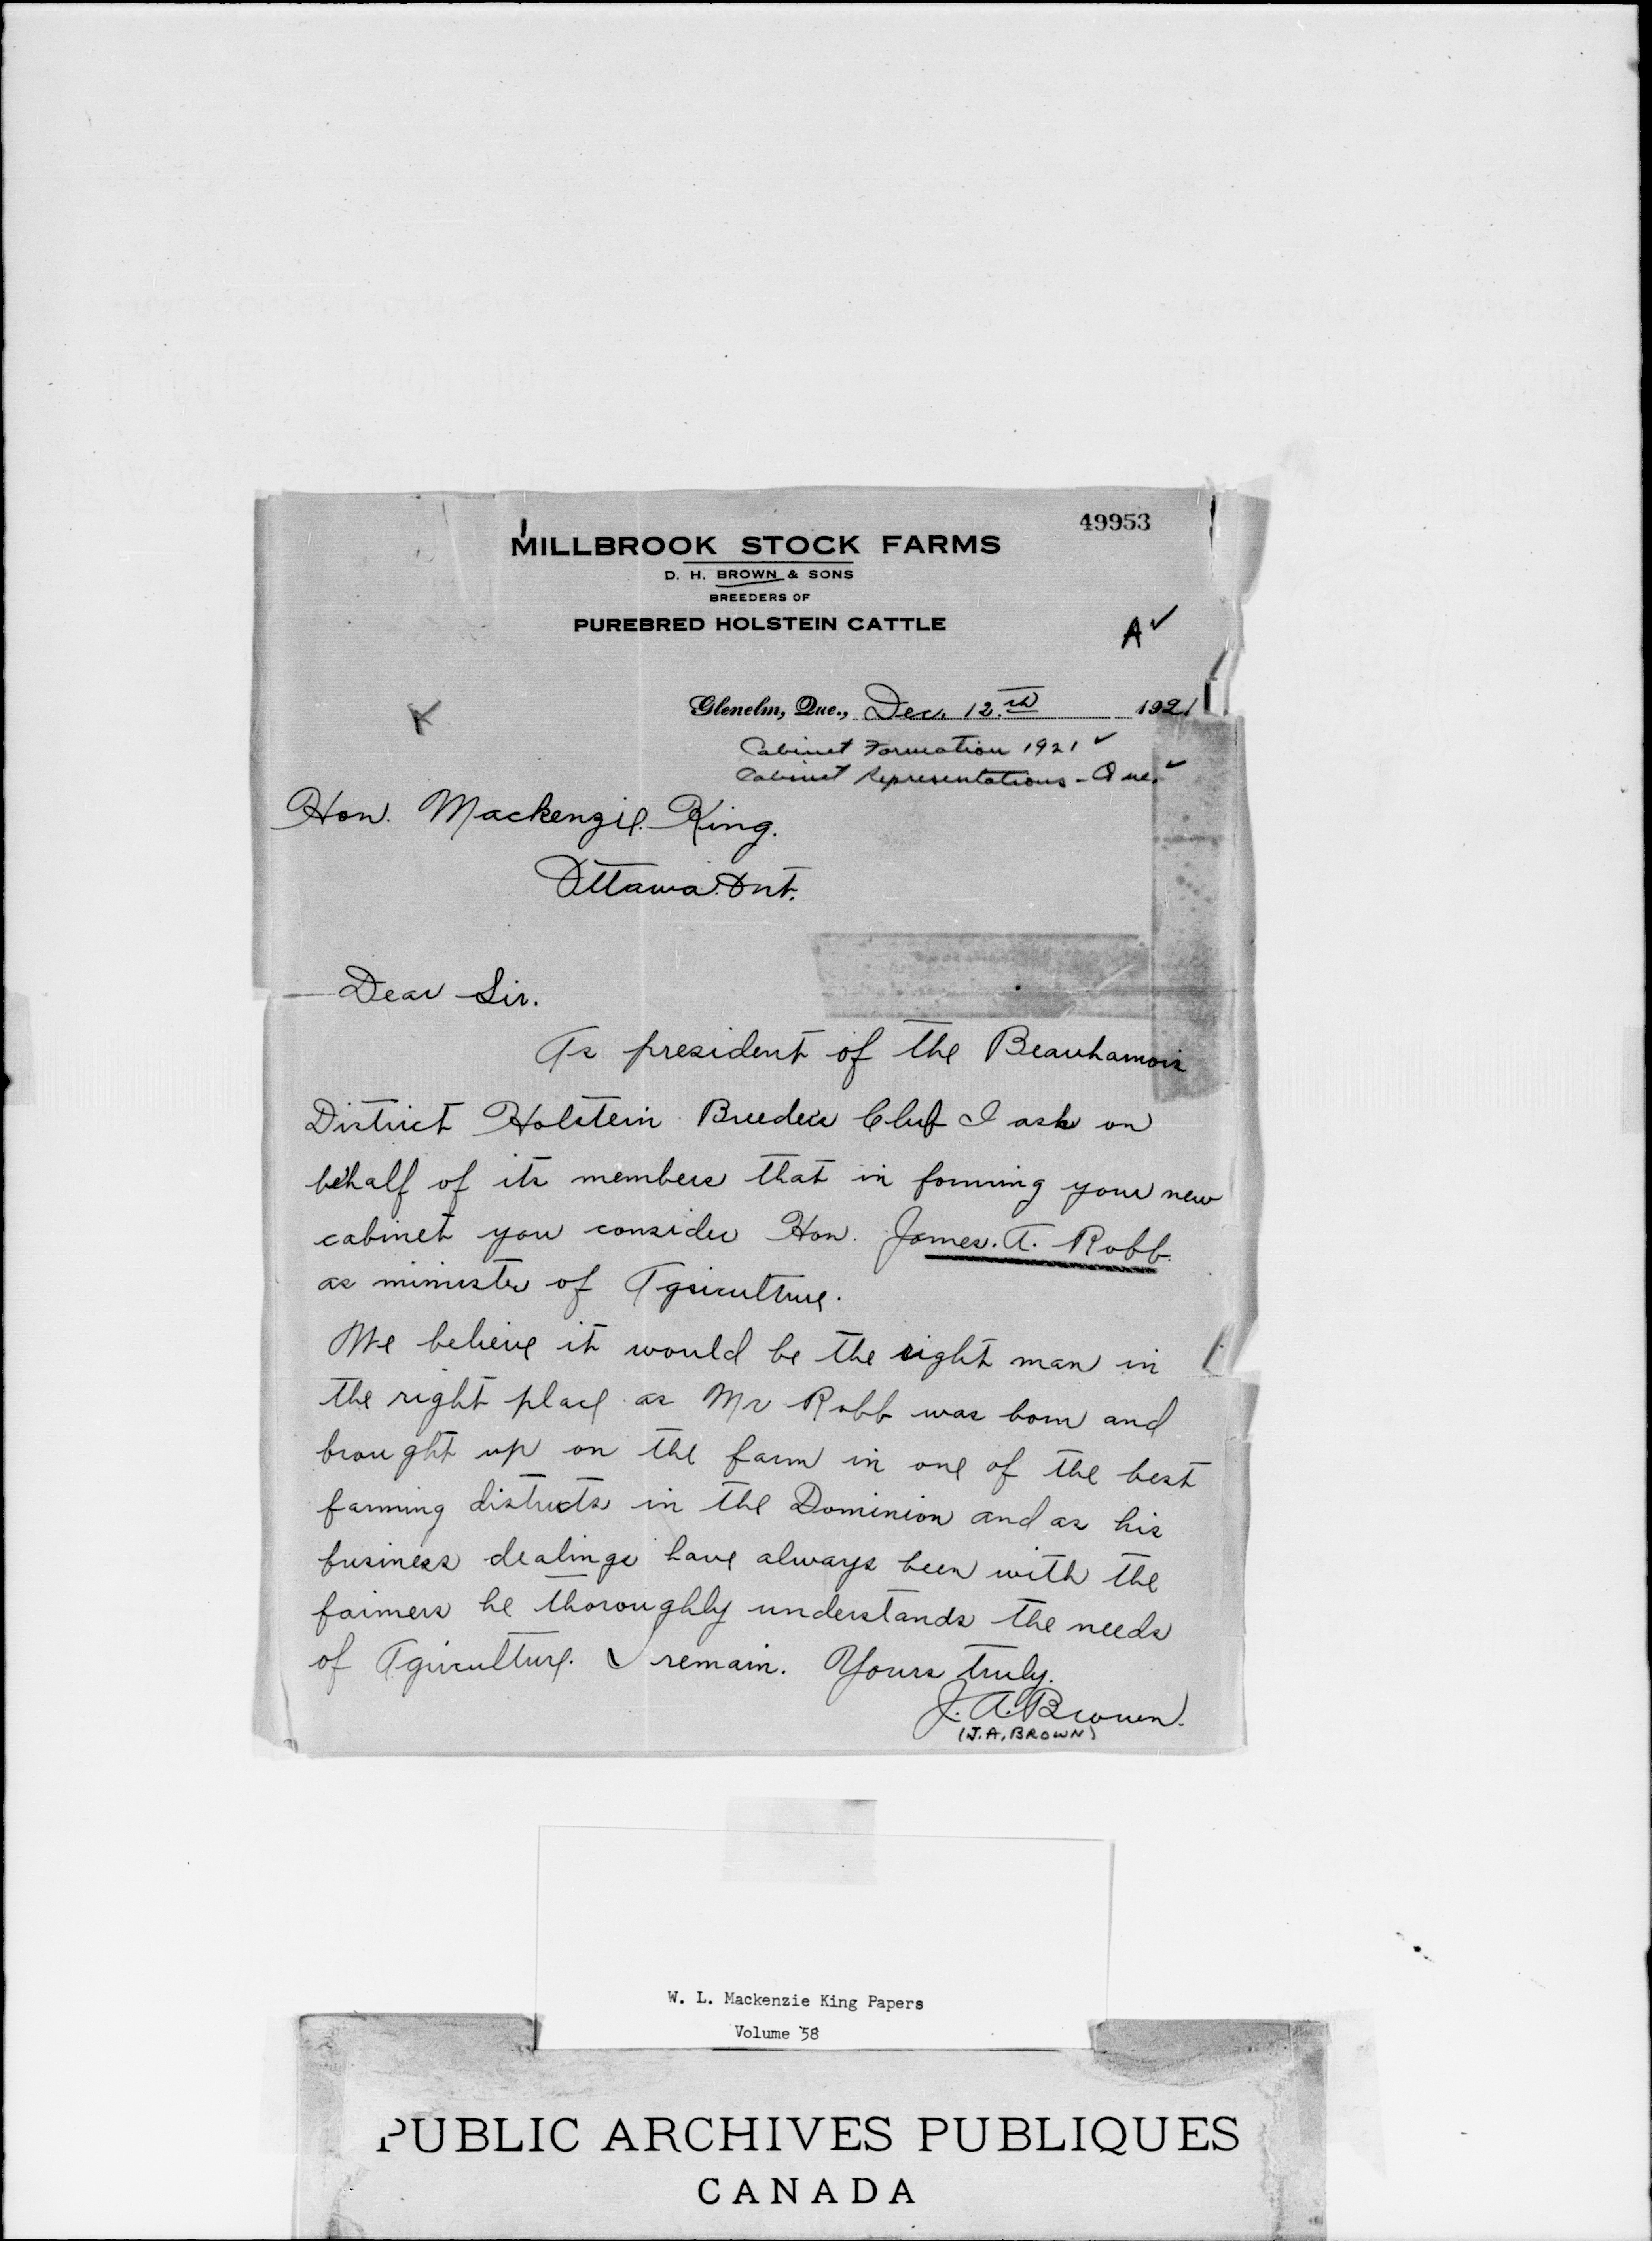 49953
MILLBROOK STOCK FARMS
D. H. BROWN & SONS
BREEDERS OF
PUREBRED HOLSTEIN CATTLE
A✓
K
Glenelm, Que., Dec. 12.th 1921
Cabinet Formation 1921 ✓
Cabinet Representations - Que. ✓
Hon. Mackenzie King.
Ottawa. Ont.
Dear Sir.
As president of the Beauharnois
District Holstein Breeders Club I ask on
behalf of its members that in forming your new
cabinet you consider Hon. James. A. Robb.
as minister of Agriculture.
We believe it would be the right man in
the right place as Mr Robb was born and
brought up on the farm in one of the best
farming districts in the Dominion and as his
business dealings have always been with the
farmers he thoroughly understands the needs
of Agriculture. I remain. Yours truly.
J. A. Brown.
(J. A. BROWN)
W. L. Mackenzie King Papers
Volume 58
PUBLIC ARCHIVES PUBLIQUES
CANADA